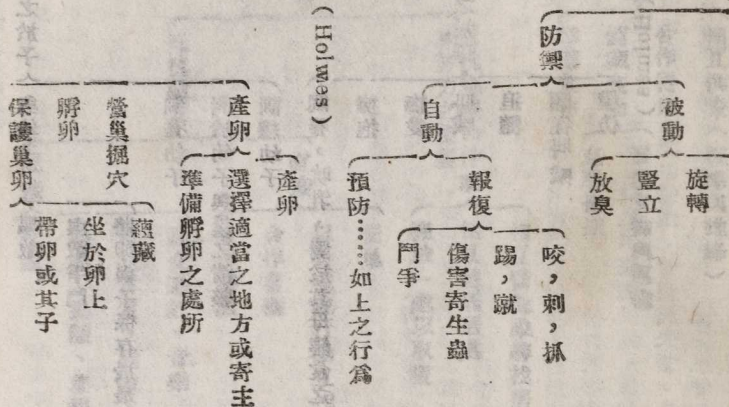 防禦
被動
旋轉
豎立
放臭
自動
報復
咬，刺，抓
踢，蹴
傷害寄生蟲
鬥爭
預防……如上之行爲
(Holwes)
產卵
產卵
選擇適當之地方或寄主
準備孵卵之處所
營巢掘穴
孵卵
保護巢卵
蘊藏
坐於卵上
帶卵或其子